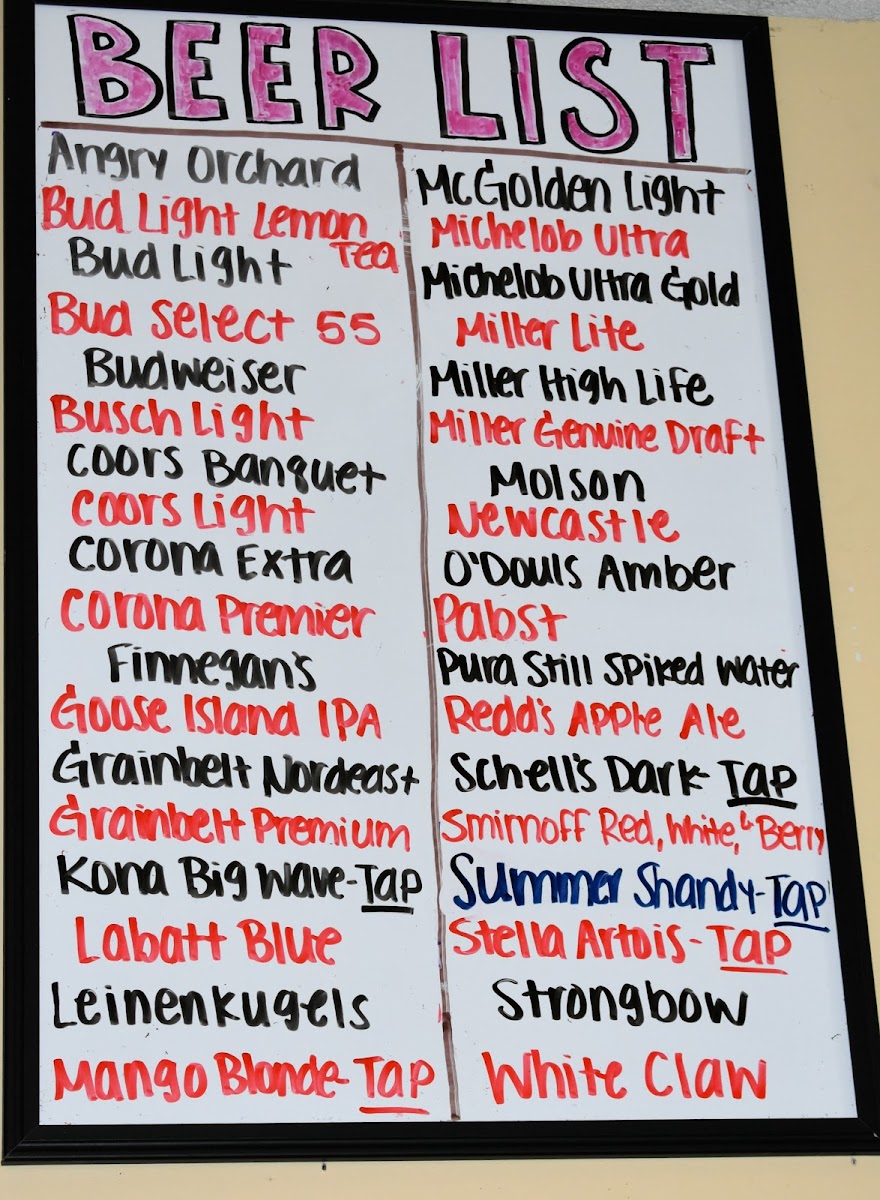 BEER LIST
Angry Orchard
Bud Light Lemon
Tea
Bud Light
Bud Select 55
Budweiser
Busch Light
Coors Banquet
Coors Light
Corona Extra
Corona Premier
Finnegan's
Goose Island IPA
Grainbelt Nordeast
Grainbelt Premium
Kona Big Wave-Tap
Labatt Blue
Leinenkugels
Mango Blonde-Tap
McGolden Light
Michelob Ultra
Michelob Ultra Gold
Miller Lite
Miller High Life
Miller Genuine Draft
Molson
Newcastle
O'Douls Amber
Pabst
Pura Still Spiked Water
Redd's Apple Ale
Schell's Dark-Tap
Smirnoff Red, White, & Berry
Summer Shandy-Tap
Stella Artois-Tap
Strongbow
White Claw